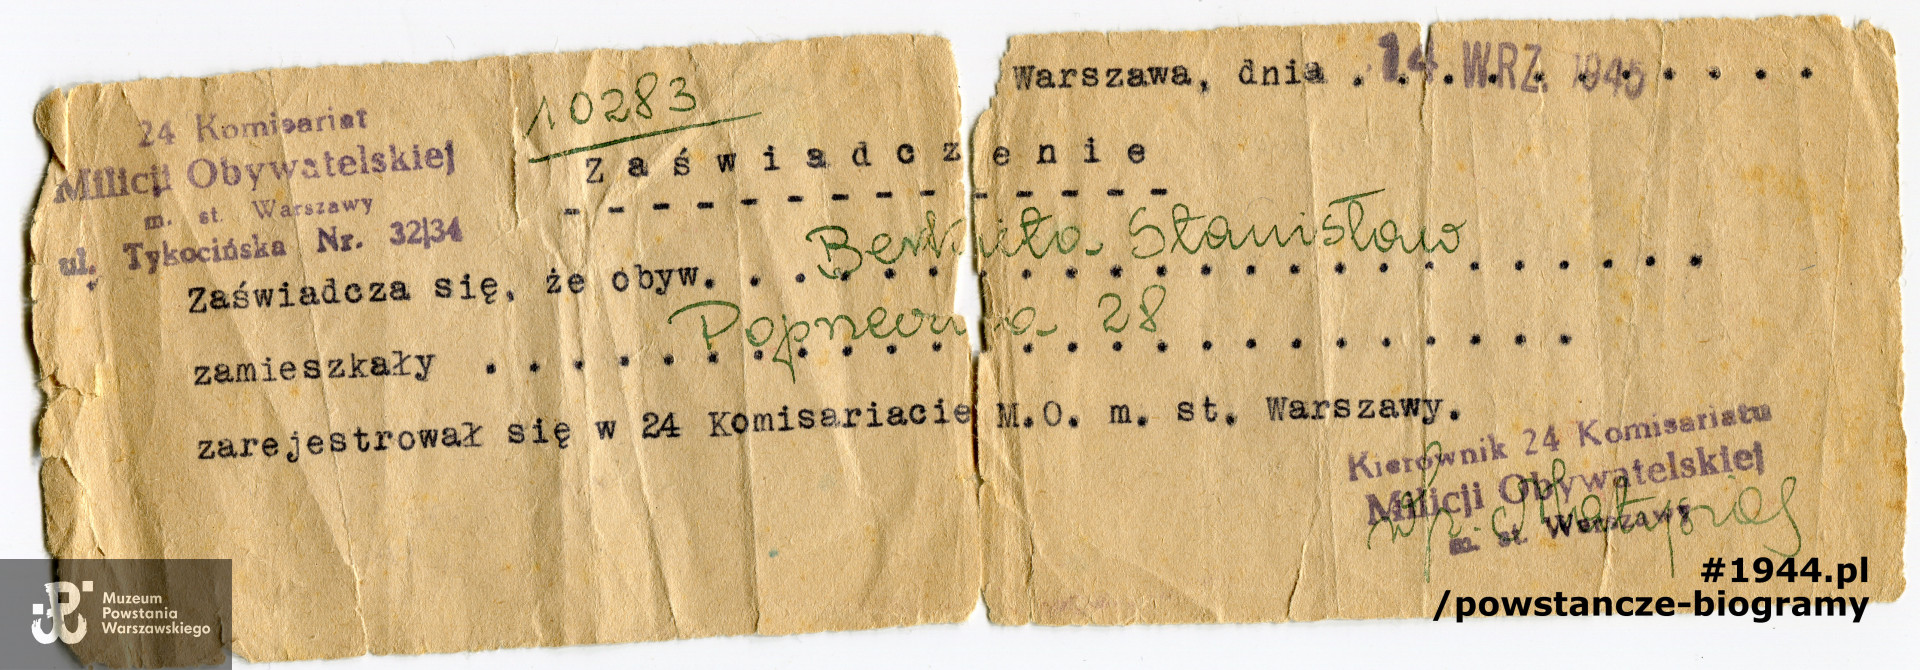 24 Komisariat
Milicji Obywatelskiej
m. st. Warszawy
ul. Tykocińska Nr. 32/34
10283
Warszawa, dnia 14 WRZ. 1945
Zaświadczenie
Zaświadcza się, że obyw. Stanisław
zamieszkały 28
zarejestrował się w 24 Komisariacie M.O. m. st. Warszawy.
Kierownik 24 Komisariatu
Milicji Obywatelskiej
m. st. Warszawy
Muzeum
Powstania
Warszawskiego
#1944.pl
/powstancze-biogramy